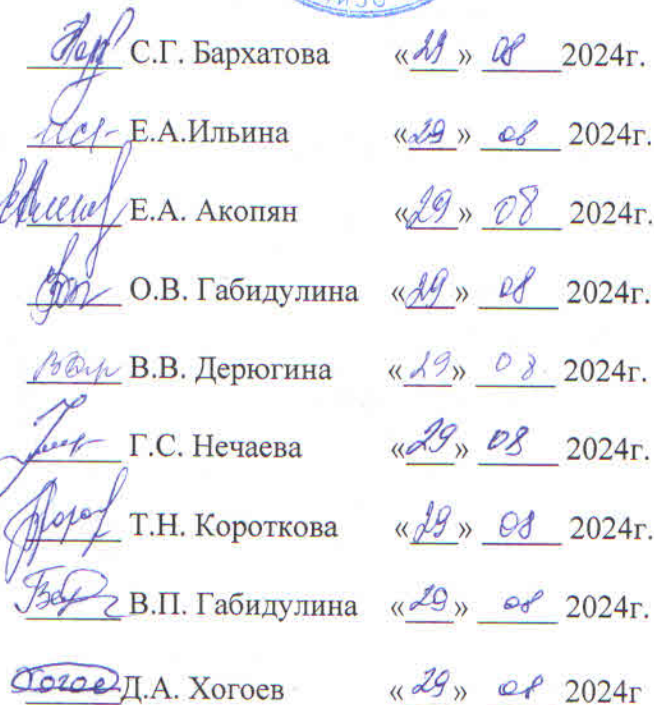 С.Г. Бархатова «29» 08 2024г.
Е.А.Ильина «29» 08 2024г.
Е.А. Акопян «29» 08 2024г.
О.В. Габидулина «29» 08 2024г.
В.В. Дерюгина «29» 08. 2024г.
Г.С. Нечаева «29» 08 2024г.
Т.Н. Короткова «29» 08 2024г.
В.П. Габидулина «29» 08 2024г.
Хогоев Д.А. Хогоев «29» 08 2024г